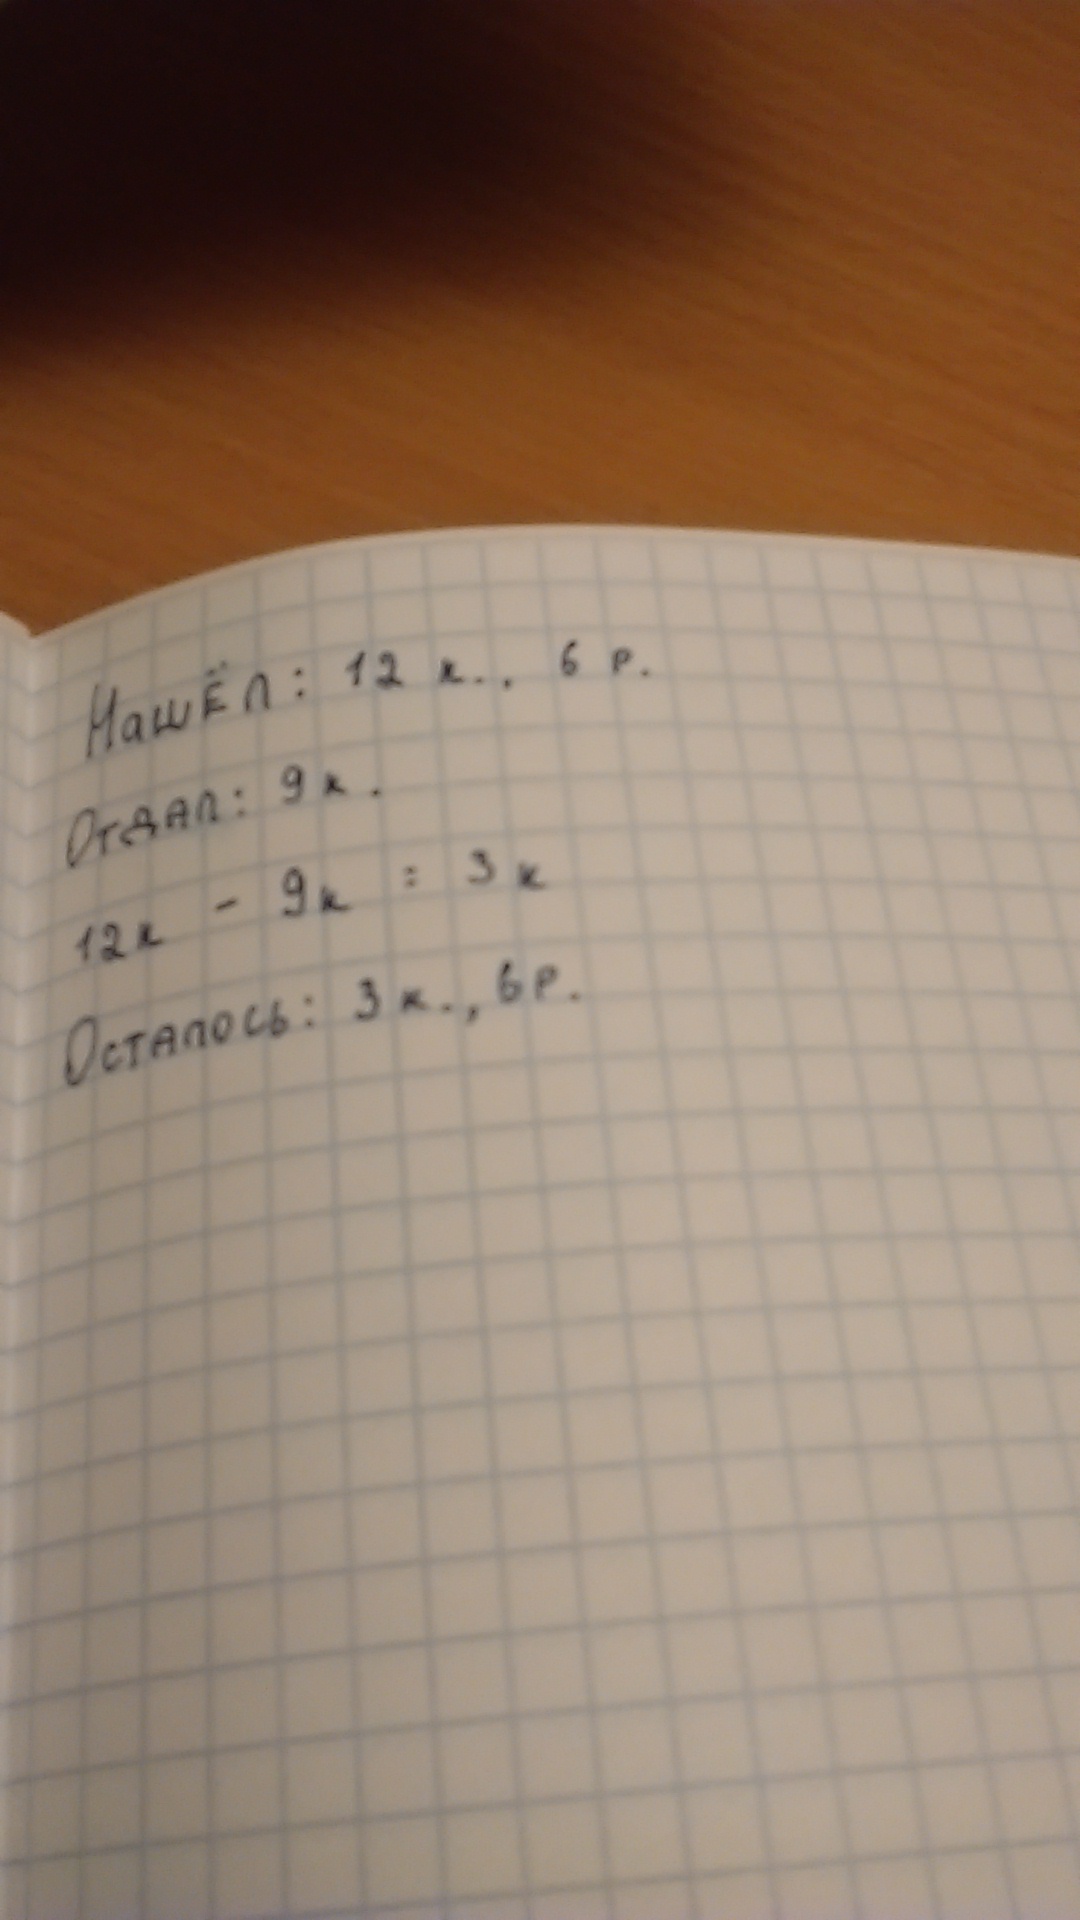 Нашёл: 12 к., 6 р.
Отдал: 9к.
12к - 9к = 3к
Осталось: 3 к., 6р.